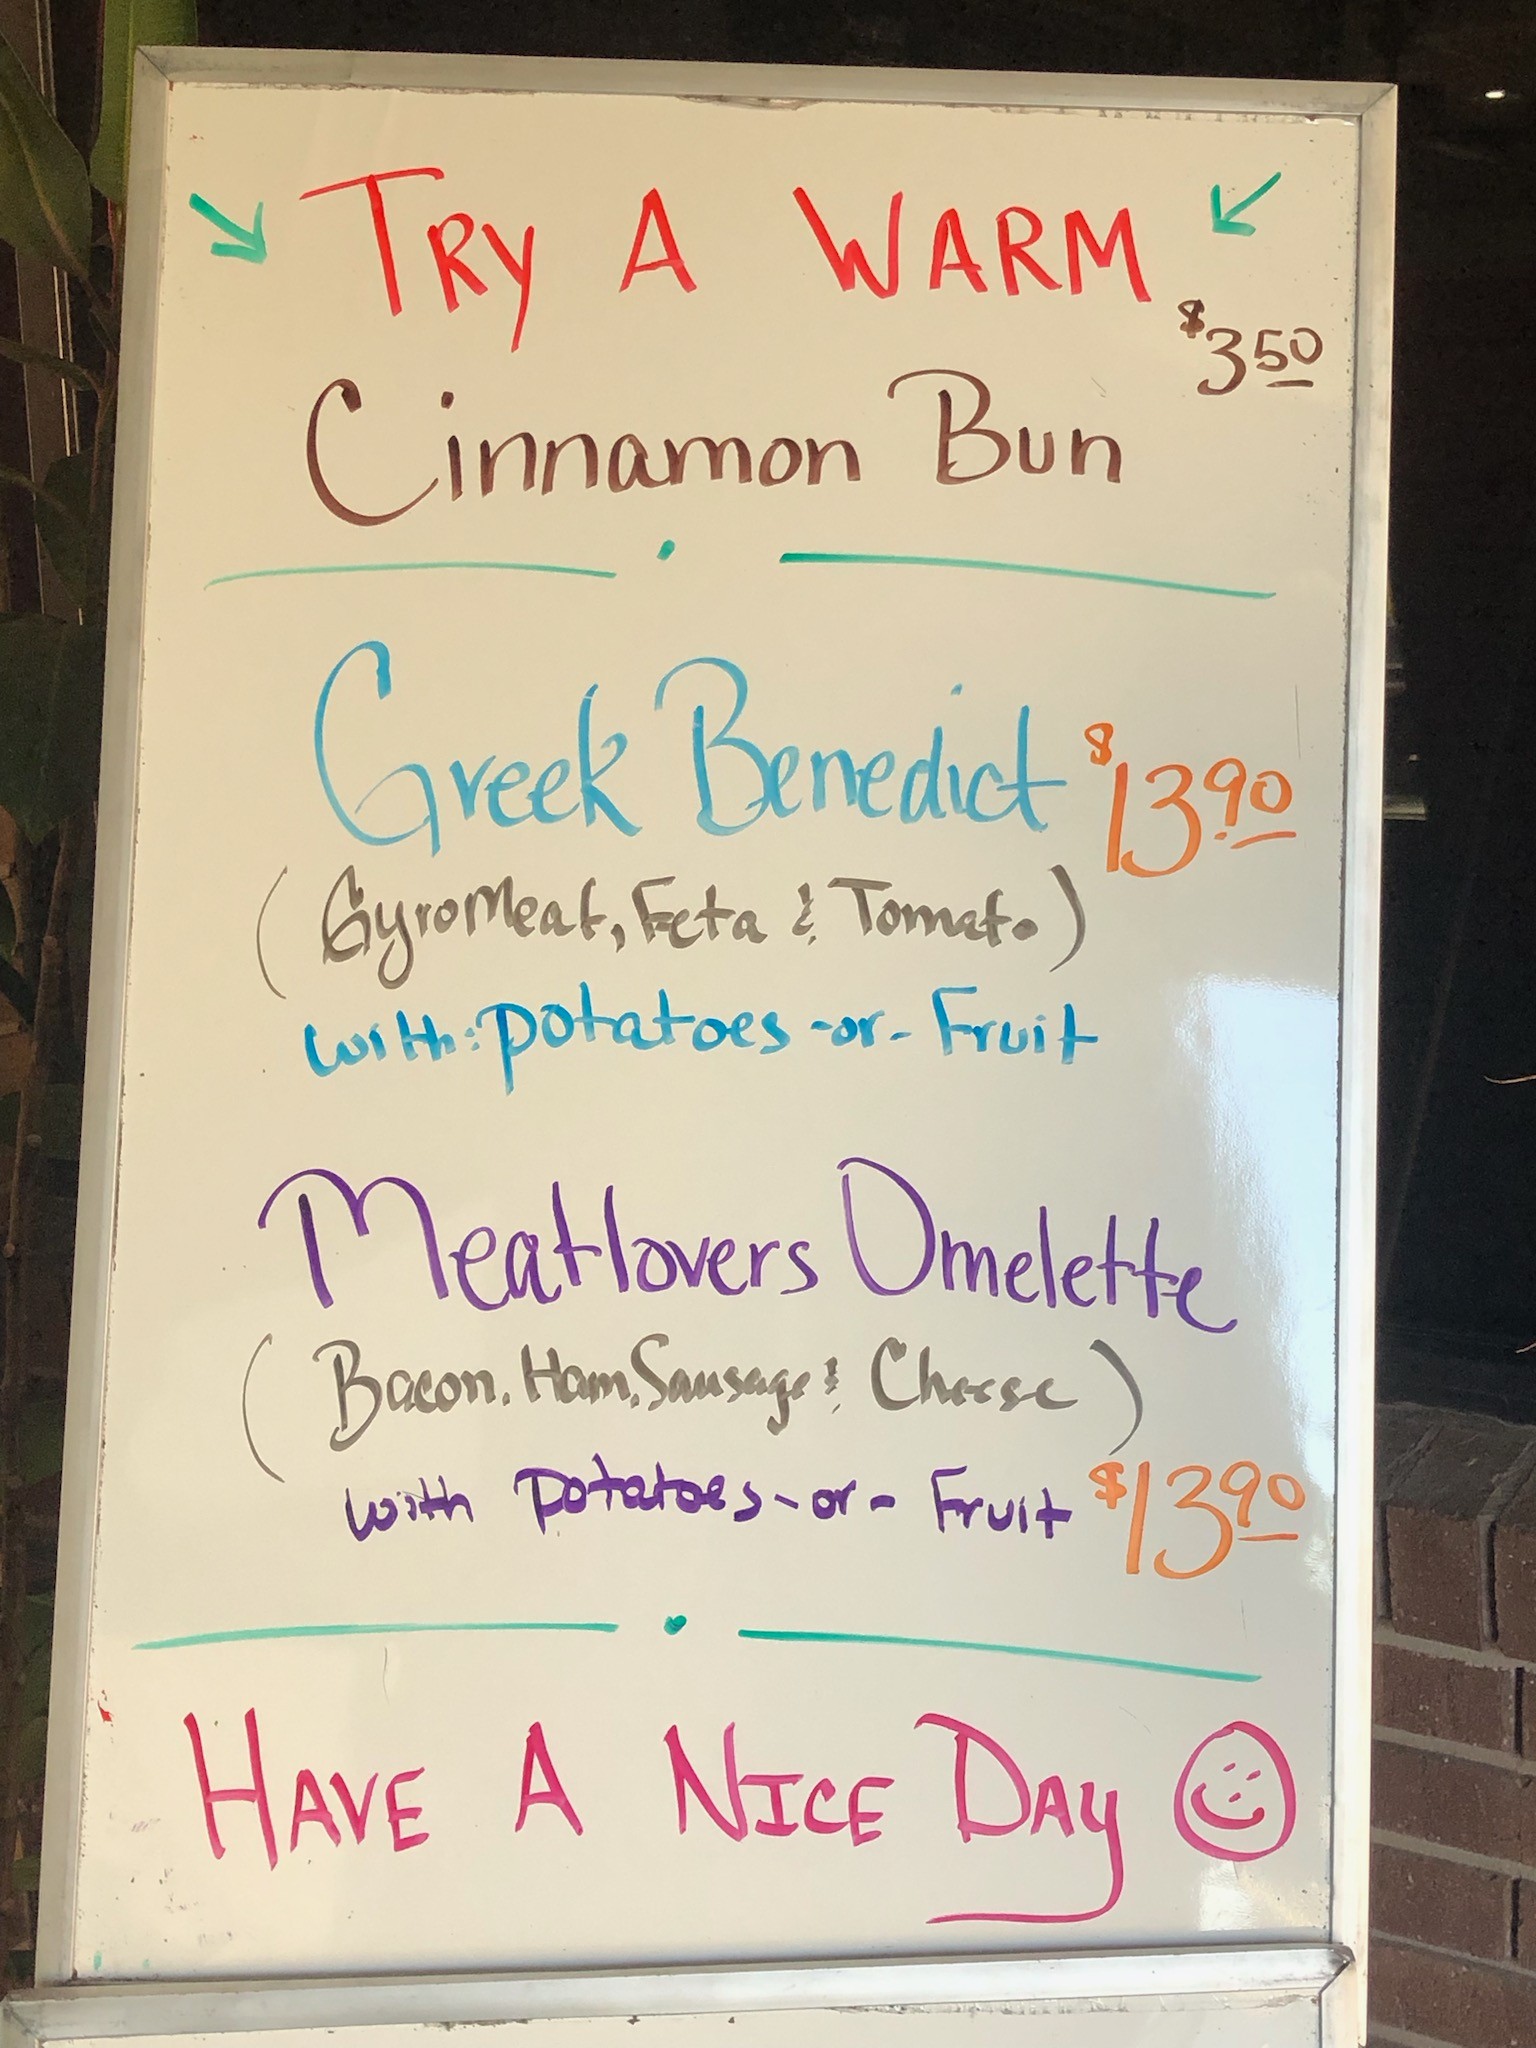 TRY A WARM
$3.50
Cinnamon Bun
Greek Benedict $13.90
(Gyro Meat, Feta & Tomato)
with: potatoes -or- Fruit
Meatlovers Omelette
(Bacon, Ham, Sausage & Cheese)
with potatoes -or- Fruit $13.90
HAVE A NICE DAY